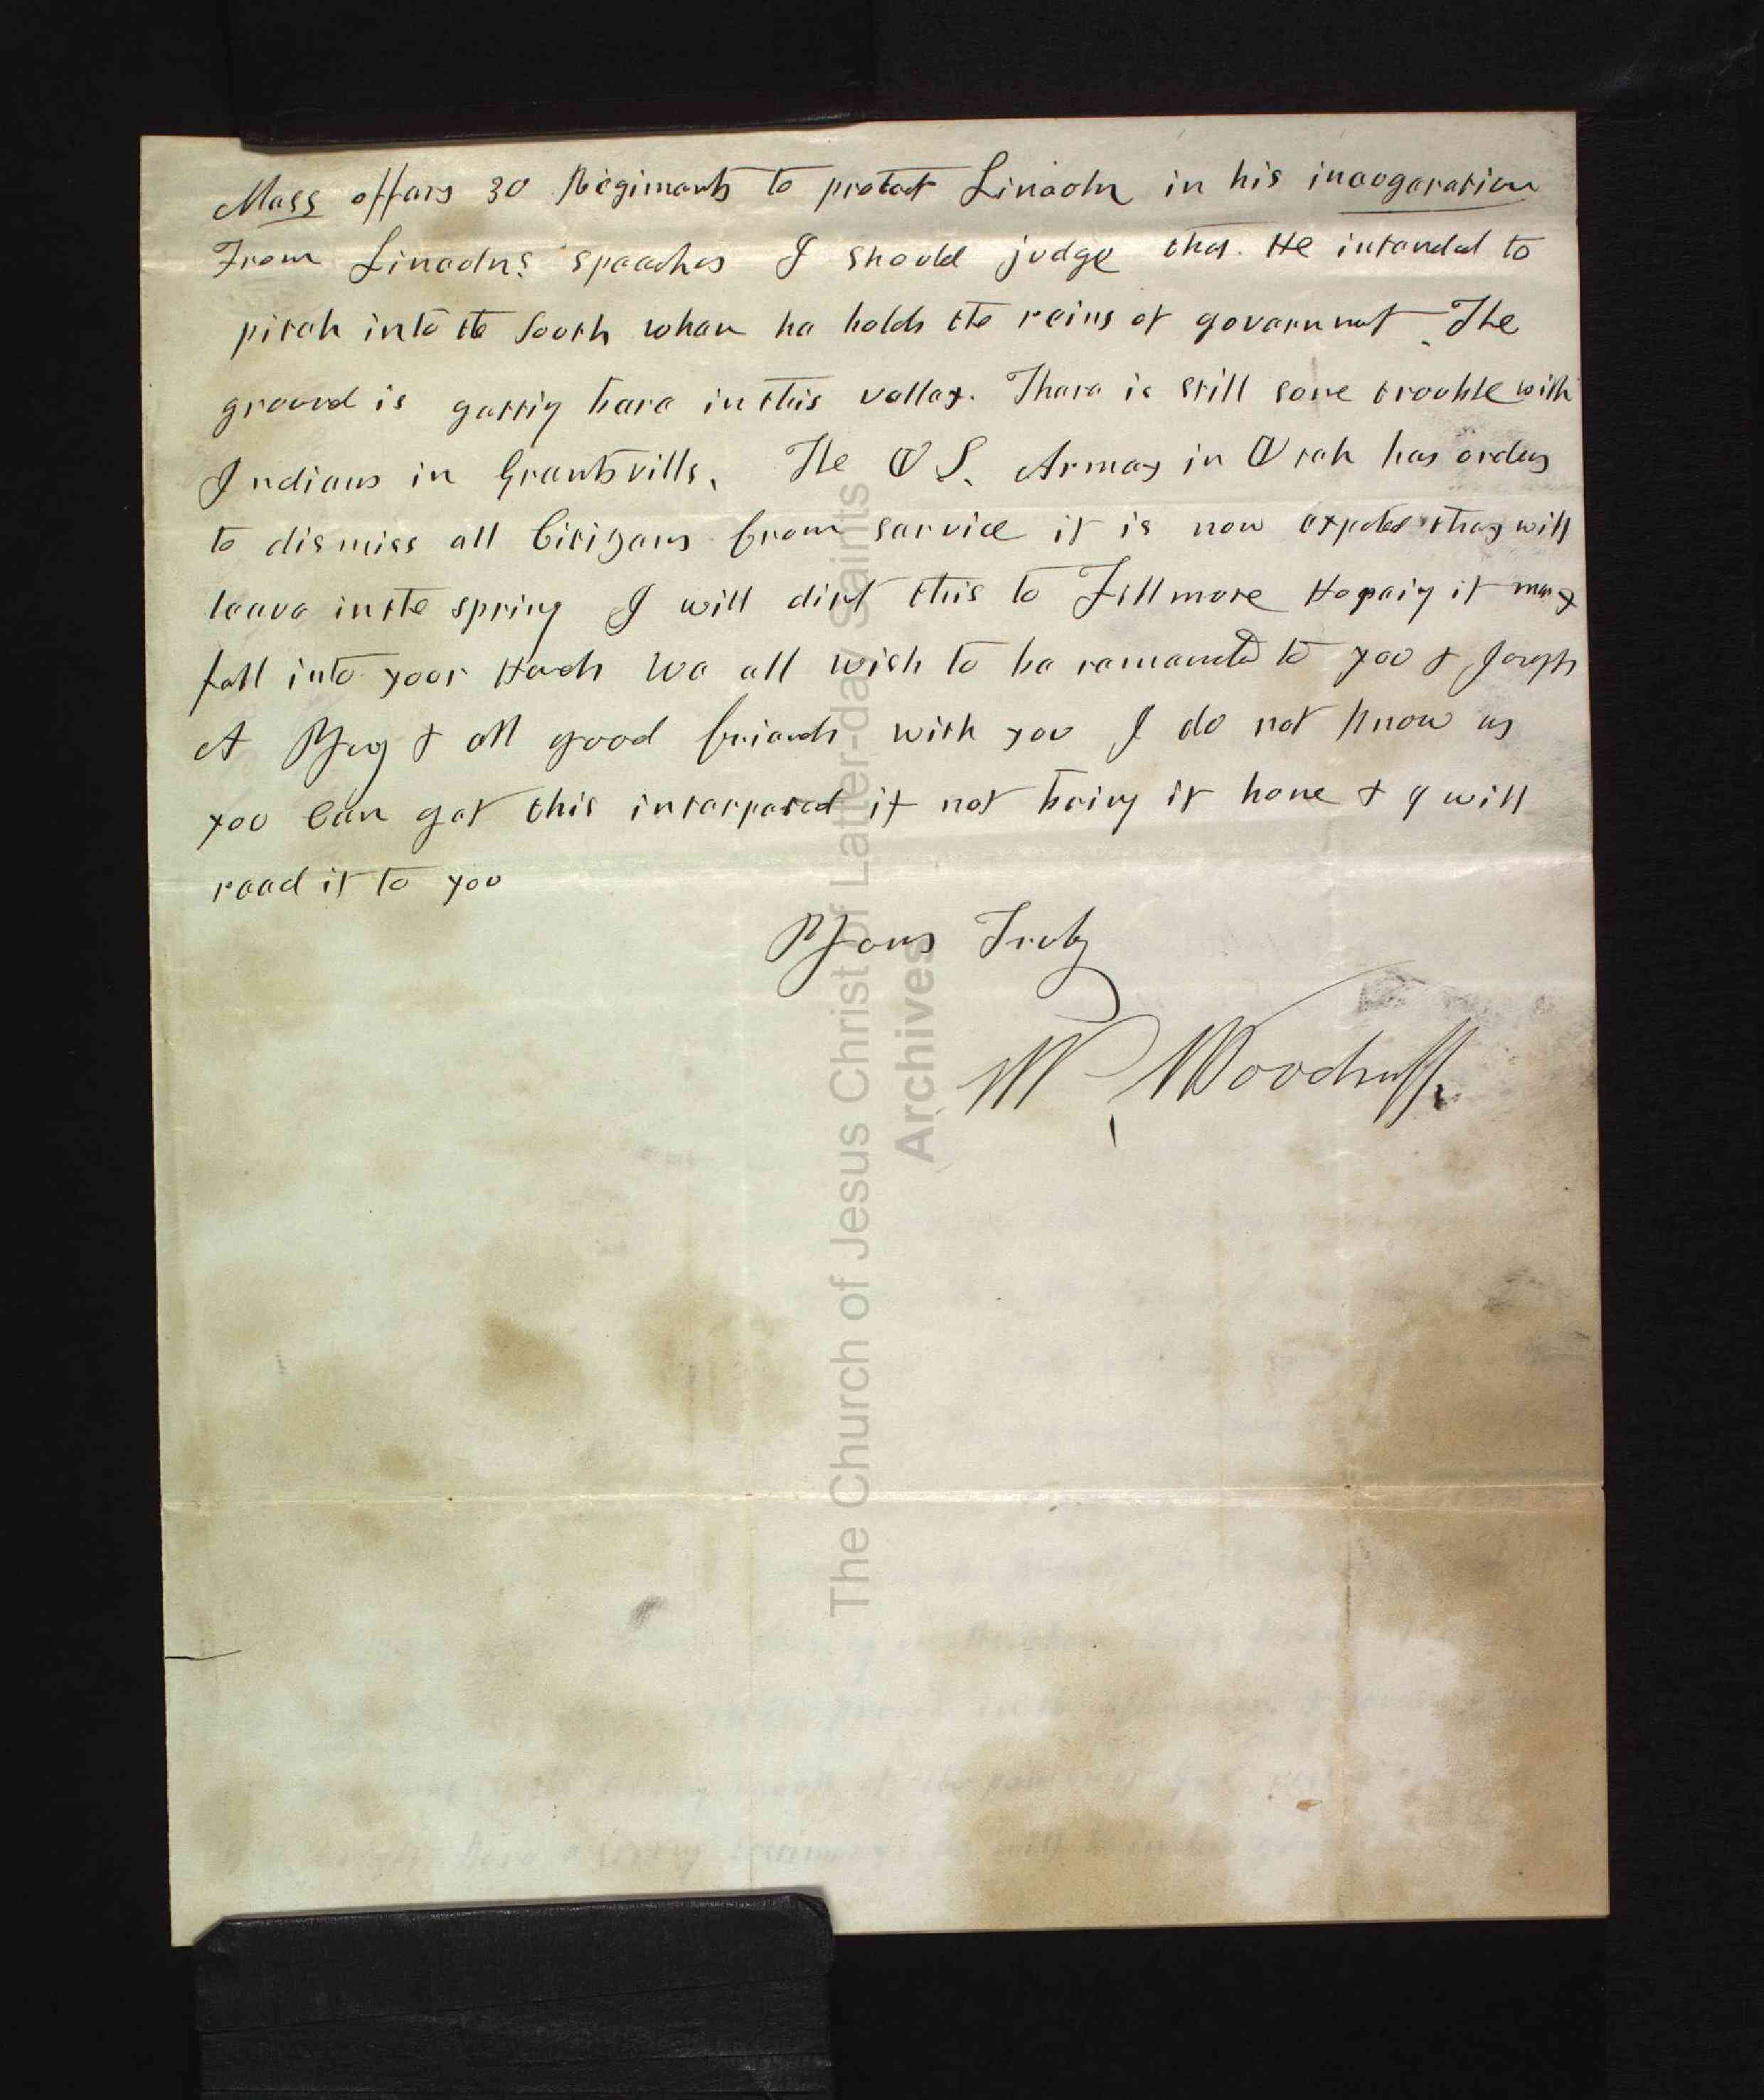 Mass offers 30 Regiments to protect Lincoln in his inaugeration
From Lincolns speeches I should judge that He intended to
pitch into the South when he holds the reins of governmet The
ground is getting bare in this valley. There is still some trouble with
Indians in Grantsvills, The U S. Armey in Utah has orders
to dismiss all Citizens from service it is now expeted they will
leave in the spring I will dirt this to Fillmore Hopeing it may
fall into your Hands We all wish to be remembered to you & Joseph
A Yg & all good friends with you I do not know as
you Can get this interpeted if not bring it home & I will
read it to you
Yours Truly
W. Woodruff
The Church of Jesus Christ of Latter-day Saints
Archives